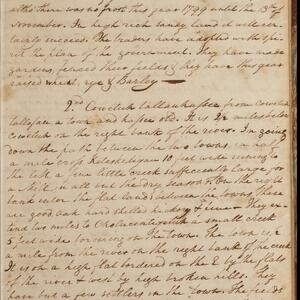 altho there was no frost this year 1799 until the 13th of
November. In high rich sandy land it will cer-
tainly succeed. The traders have adopted with spi-
rit the plan of the government. They have made
gardens, fenced their fields & they have this year
raised wheat, rye & Barley
2nd Coweluh tallauhassee from Coweluh
tallofau a town and hassee old. It is 2½ miles below
Coweluh on the right bank of the river. In going
down the path between the two towns, in half
a mile cross 10 feet wide running to
the left a fine little creek sufficiently large for
a Mill, in all but the dry seasons. On the right
bank enter the flat lands between the towns these
are good oak hard shelled hickory & pine. They ex-
tend two miles to a small creek
5 feet wide bordering on the town. The town is ½
a mile from the river on the right bank of the creek
It is on a high flat bordered on the E by the flats
of the river & west by high broken hills. They
have but a few settlers in the town. The fields